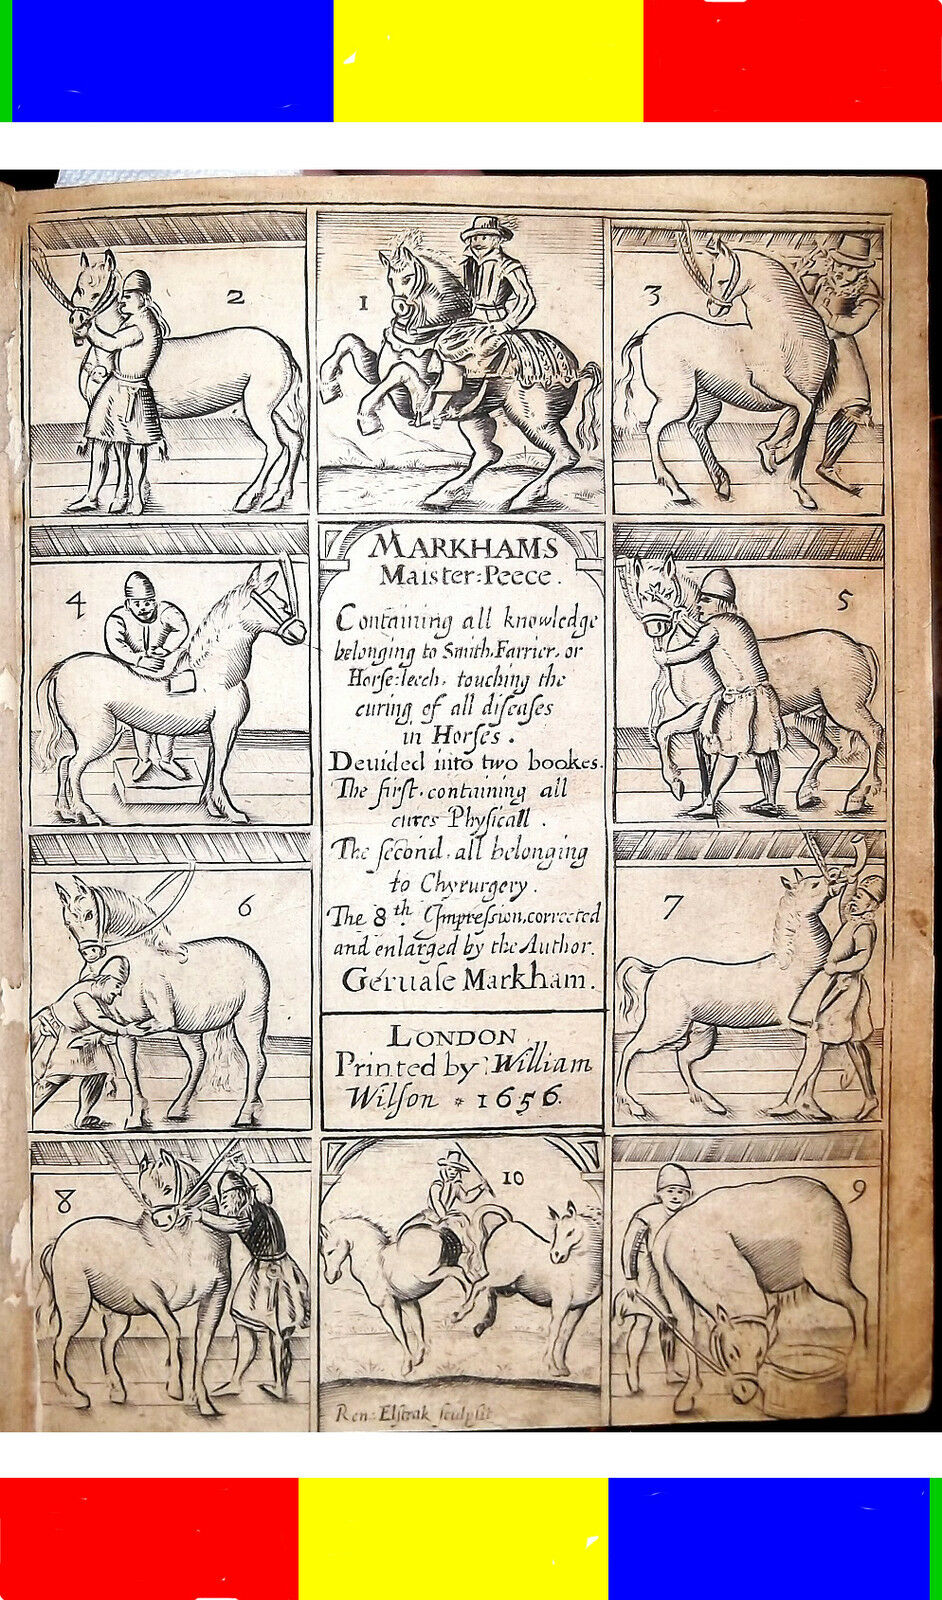 2
1
3
MARKHAMS
Maister:Peece.
4
5
Containing all knowledge
belonging to Smith, Farrier, or
Horse:leech, touching the
curing of all diſeaſes
in Horſes.
Deuided into two bookes.
The firſt, containing all
cures Phyſicall.
The ſecond, all belonging
to Chyrurgery.
The 8th Impreſsion, corrected
and enlarged by the Author.
Geruaſe Markham.
6
7
LONDON
Printed by: William
Wilſon * 1656.
8
10
9
Ren: Elſtrak ſculpſit